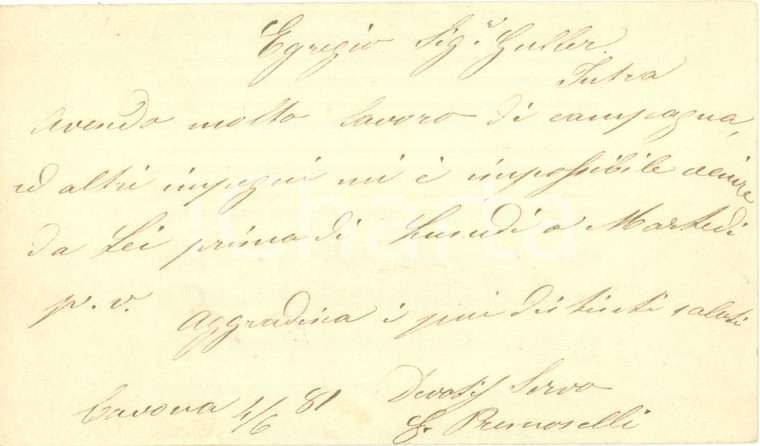 Egregio Sigr. Guller.
Intra
Avendo molto lavoro di campagna,
ed altri impegni mi è impossibile venire
da Lei prima di Lunedì o Martedì
p. v.
Aggradisca i piu distinti saluti
Cavona 4/6 81
Devotis Servo
G. Premoselli